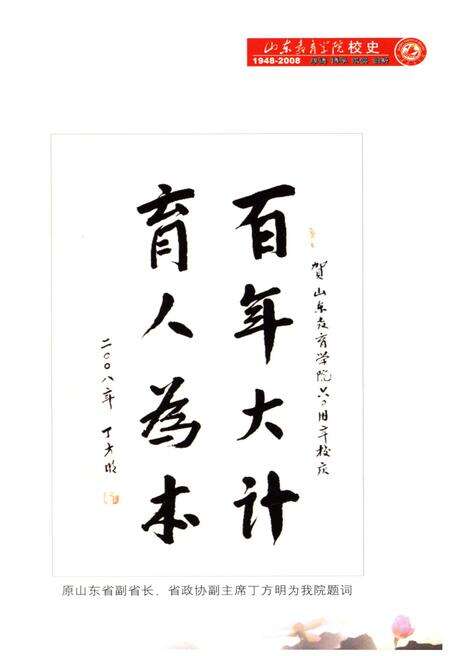 山东教育学院校史
1948-2008
贺山东教育学院六〇周年校庆
百年大计
育人為本
二〇〇八年 丁方明
原山东省副省长、省政协副主席丁方明为我院题词